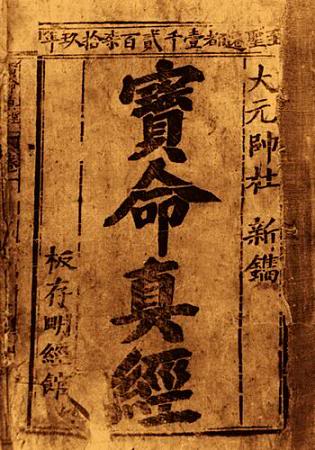 至聖遷都壹千貳百柒拾玖年
大元帥杜 新鐫
寶命真經
板存明經館